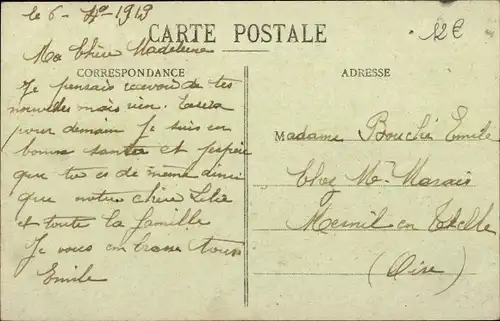 le 6 - 4º - 1919
CARTE POSTALE
12€
CORRESPONDANCE
ADRESSE
Ma Chère Madeleine
Je pensais recevoir de tes
nouvelles mais rien. Casera
pour demain Je suis en
bonne santé et j'espère
que tu es de même ainsi
que notre chère Lilie
et toute la famille
Je vous embrasse tous
Emile
Madame Bouché Emile
Chez Mr Marais
Mesnil en Thelle
(Oise)